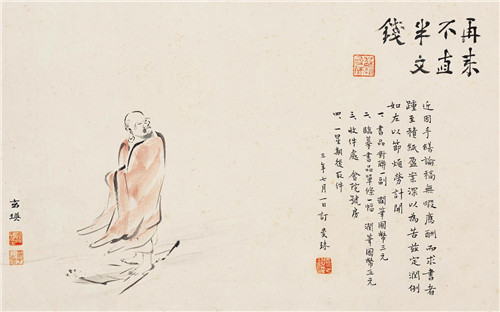 再来
不直
半文
錢
近因手繕論稿無暇應酬而求書者
踵至積紙盈案深以為苦茲定潤例
如左以節煩勞計開
一、書品對聯一副 潤筆國幣三元
二、臨摹書品單條一幅 潤筆國幣五元
三、收件處 會院號房
四、一星期後取件
三年七月一日訂
玄瑛